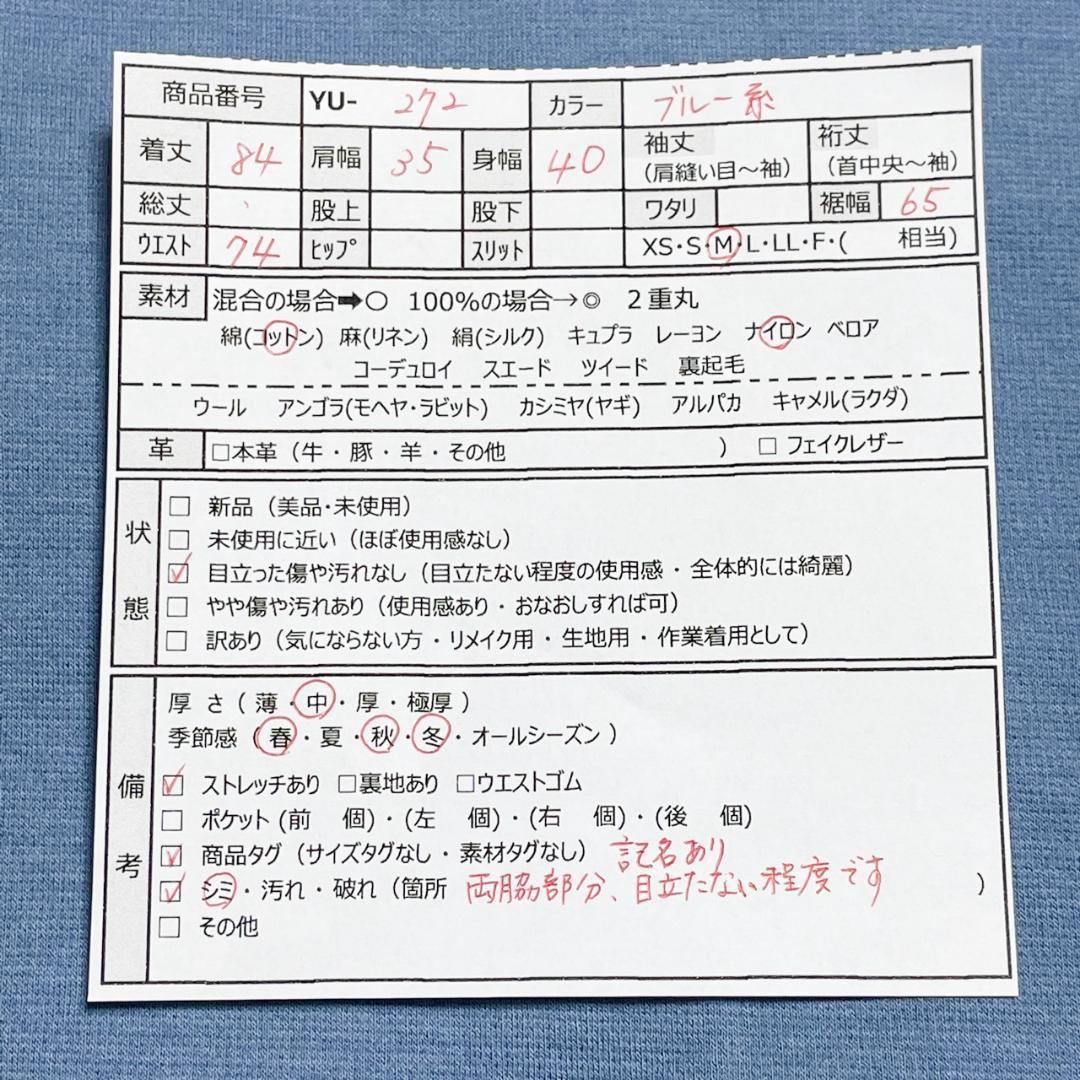 商品番号 YU- 272 カラー ブルー系
着丈 84 肩幅 35 身幅 40 袖丈(肩縫い目～袖) 裄丈(首中央～袖)
総丈 股上 股下 ワタリ 裾幅 65
ウエスト 74 ヒップ スリット XS・S・M・L・LL・F・( 相当)
素材 混合の場合➡○ 100%の場合→◎ 2重丸
綿(コットン) 麻(リネン) 絹(シルク) キュプラ レーヨン ナイロン ベロア
コーデュロイ スエード ツイード 裏起毛
ウール アンゴラ(モヘヤ・ラビット) カシミヤ(ヤギ) アルパカ キャメル(ラクダ)
革 □本革（牛・豚・羊・その他 ） □ フェイクレザー
状態
□ 新品（美品・未使用）
□ 未使用に近い（ほぼ使用感なし）
☑ 目立った傷や汚れなし（目立たない程度の使用感・全体的には綺麗）
□ やや傷や汚れあり（使用感あり・おなおしすれば可）
□ 訳あり（気にならない方・リメイク用・生地用・作業着用として）
備考
厚さ（薄・中・厚・極厚）
季節感（春・夏・秋・冬・オールシーズン）
☑ ストレッチあり □裏地あり □ウエストゴム
□ ポケット(前 個)・(左 個)・(右 個)・(後 個)
☑ 商品タグ（サイズタグなし・素材タグなし） 記名あり
☑ シミ・汚れ・破れ（箇所 両脇部分、目立たない程度です ）
□ その他